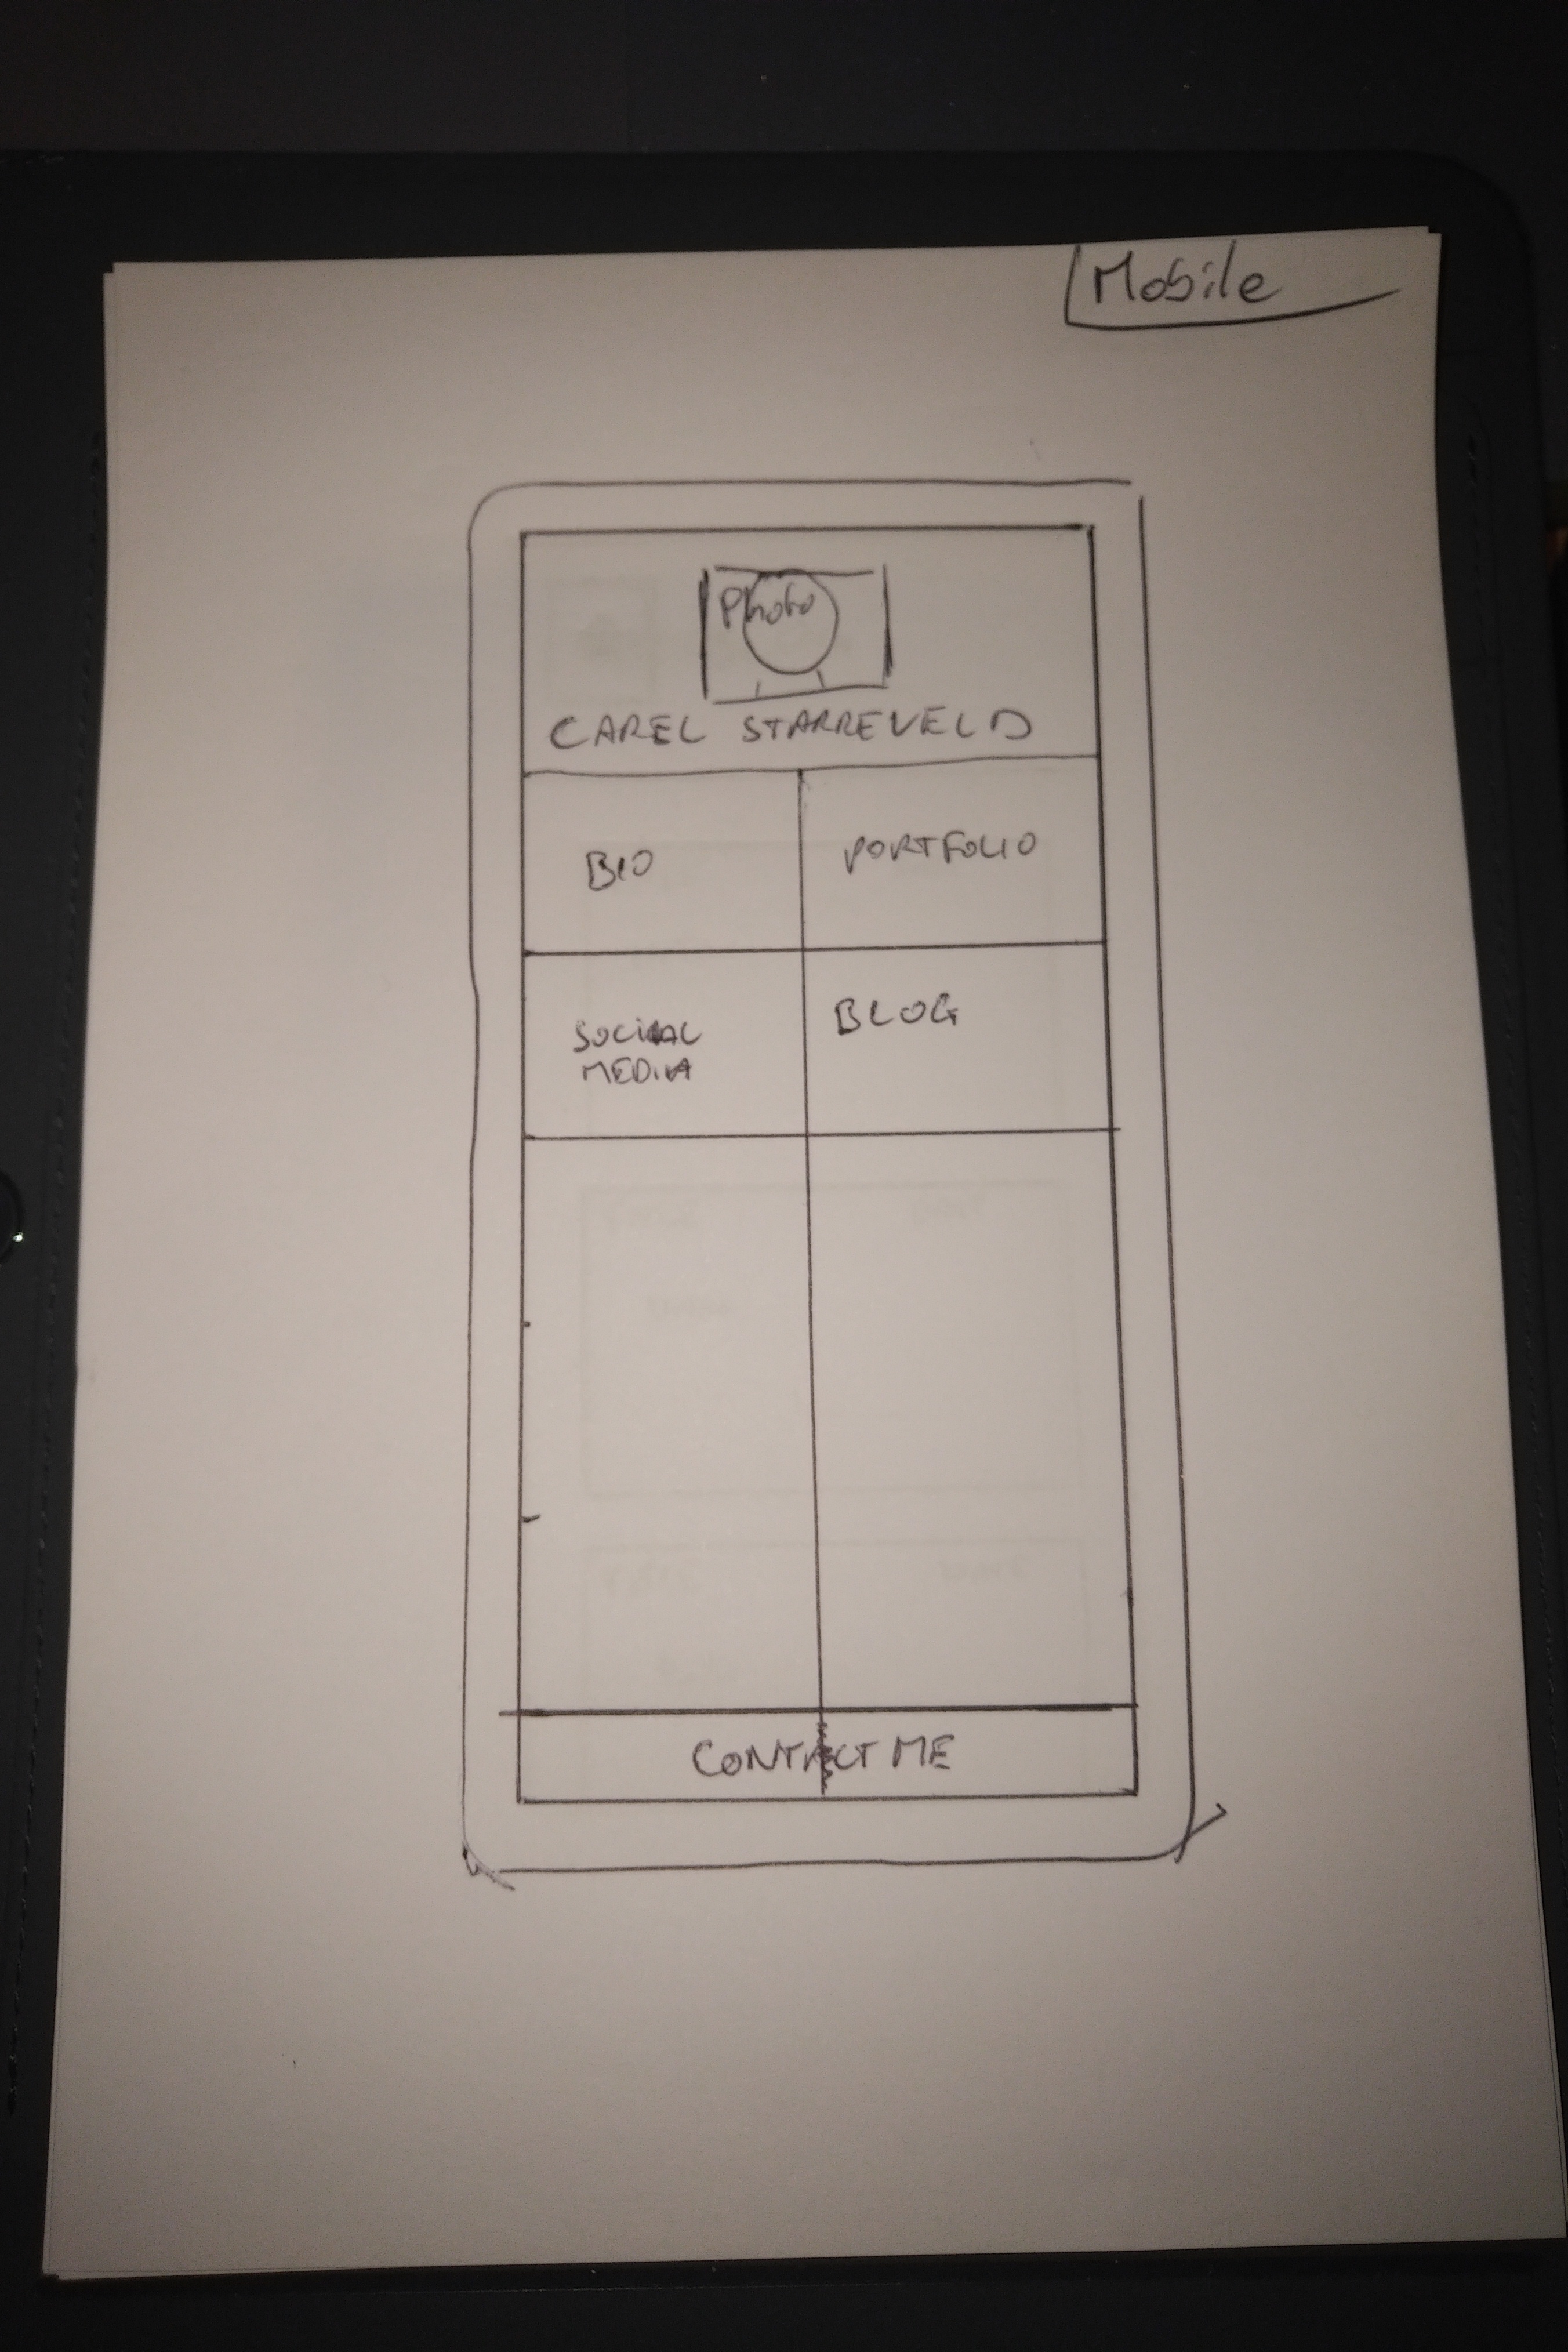 Mobile
Photo
CAREL STARREVELD
BIO
PORTFOLIO
SOCIAL
MEDIA
BLOG
CONTACT ME